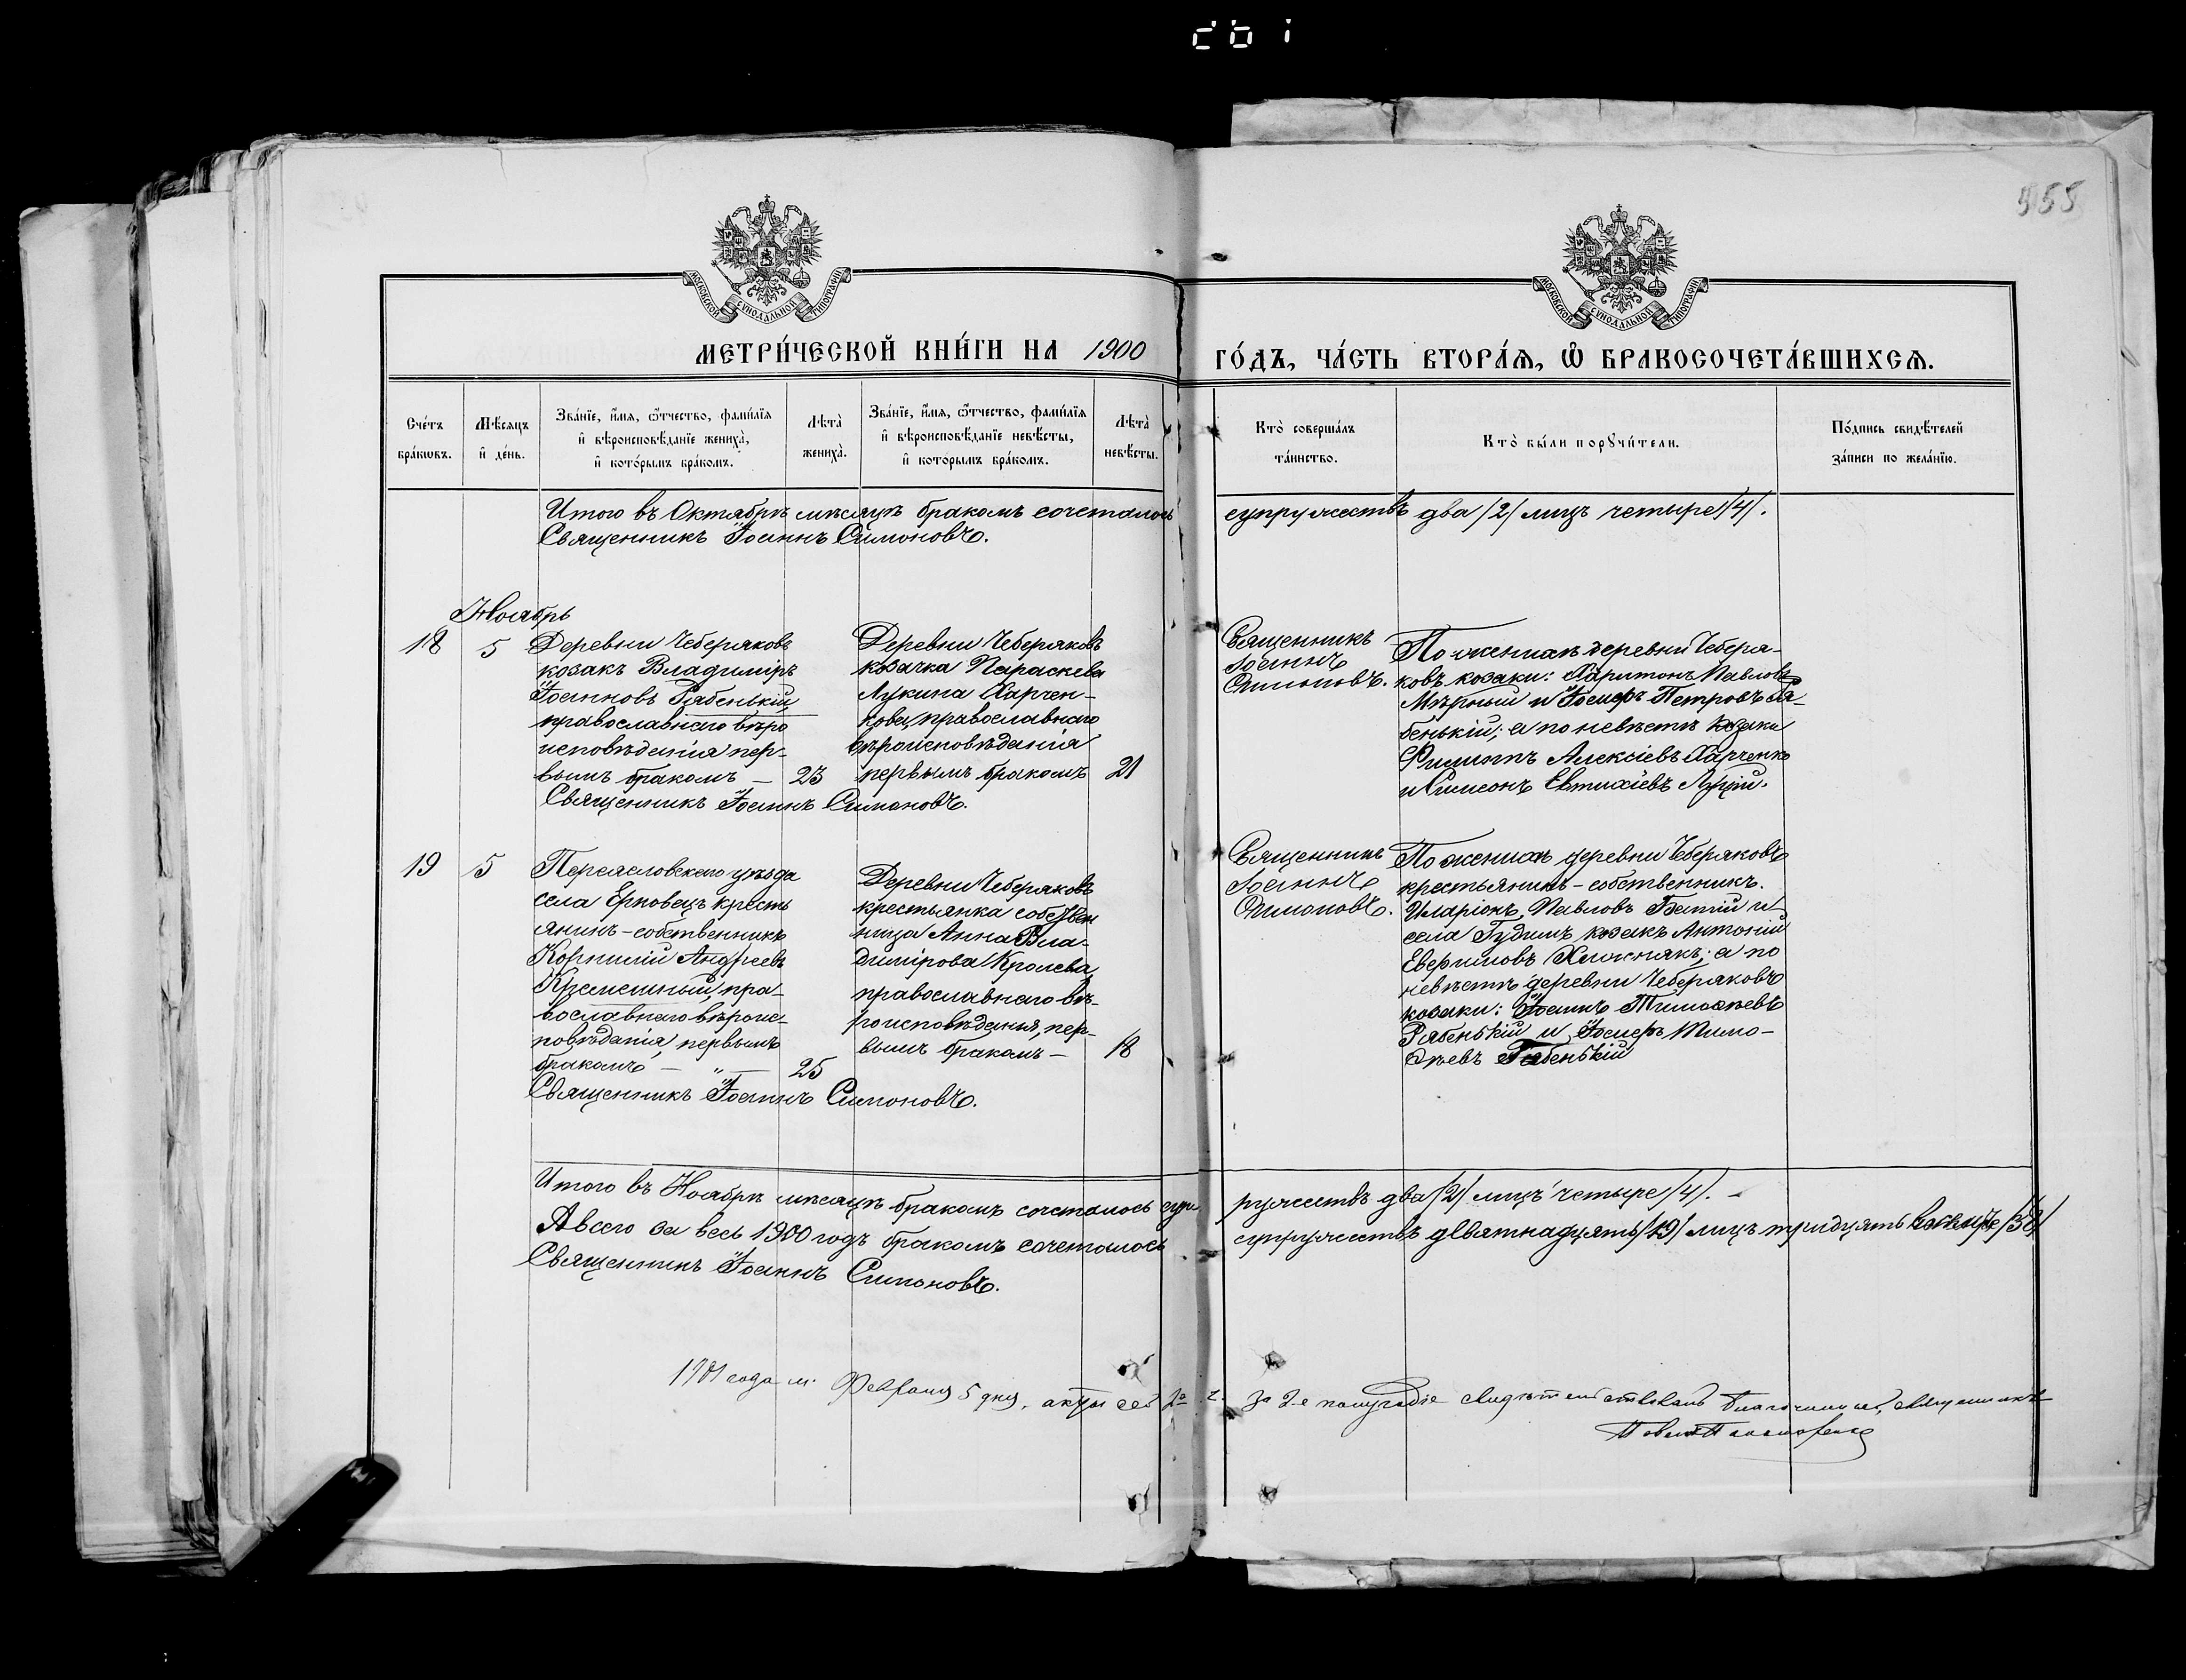 555
МОСКОВСКОЙ СѴНОДАЛЬНОЙ ТИПОГРАФІИ
МОСКОВСКОЙ СѴНОДАЛЬНОЙ ТИПОГРАФІИ
МЕТРИ́ЧЕСКОЙ КНИ́ГИ НА 1900
ГО́ДЪ, ЧА́СТЬ ВТОРА́Ѧ, Ѡ҆ БРАКОСОЧЕТА́ВШИХСѦ.
Сче́тъ
бра́кѡвъ.
Мѣ́сяцъ
и҆ де́нь.
Зва́нїе, и҆́мѧ, ѻ҆́тчество, фами́лїѧ
и҆ вѣроисповѣ́данїе жениха̀,
и҆ кото́рымъ бра́комъ.
Лѣта̀
жениха̀.
Зва́нїе, и҆́мѧ, ѻ҆́тчество, фами́лїѧ
и҆ вѣроисповѣ́данїе невѣ́сты,
и҆ кото́рымъ бра́комъ.
Лѣта̀
невѣ́сты.
Кто̀ соверша́лъ
та́инство.
Кто̀ бы́ли порꙋчи́тели.
По́дпись свидѣ́телей
за́писи по жела́нїю.
Итого въ Октябрѣ мѣсяцѣ бракомъ сочеталось
супружествъ два /2/ лицъ четыре /4/.
Священникъ Іоаннъ Симоновъ.
Ноябрь
18
5
Деревни Чеберяковъ
козакъ Владиміръ
Іоанновъ Рябенькій,
православнаго вѣро
исповѣданія пер-
вымъ бракомъ —
23
Деревни Чеберяковъ
козачка Параскева
Лукина Харчен-
кова, православнаго
вѣроисповѣданія
первымъ бракомъ
21
Священникъ Іоаннъ Симоновъ.
Священникъ
Іоаннъ
Симоновъ.
По женихѣ деревни Чеберя-
ковъ козаки: Харитонъ Павловъ
Мѣрный и Іосифъ Петровъ Ря-
бенькій; а по невѣстѣ козаки
Филиппъ Алексіевъ Харченко
и Симеонъ Евтихіевъ
19
5
Переясловскаго уѣзда
села Ерковецъ кресть
янинъ-собственникъ
Корнилій Андреевъ
православнаго вѣроис-
повѣданія, первымъ
бракомъ — „ —
25
Деревни Чеберяковъ
крестьянка собствен
ница Анна Вла-
димірова Кролева,
православнаго вѣ-
роисповѣданія, пер-
вымъ бракомъ —
18
Священникъ Іоаннъ Симоновъ.
Священникъ
Іоаннъ
Симоновъ.
По женихѣ деревни Чеберяковъ
крестьянинъ-собственникъ.
Иларіонъ Павловъ и
села Гудимъ козакъ Антоній
а по
невѣстѣ деревни Чеберяковъ
козаки: Іоаннъ Тимоѳеевъ
Рябенькій и Іосифъ Тимо-
ѳеевъ Рябенькій
Итого въ Ноябрѣ мѣсяцѣ бракомъ сочеталось суп
ружествъ два /2/ лицъ четыре /4/.
А всего за весь 1900 годъ бракомъ сочеталось
супружествъ девятнадцять /19/ лицъ тридцять восемъ /38/
Священникъ Іоаннъ Симоновъ.
1901 года м. Февраля 5 дня, акты сей
за 2-е полугодіе свидѣтельствовалъ Благочинный, священникъ